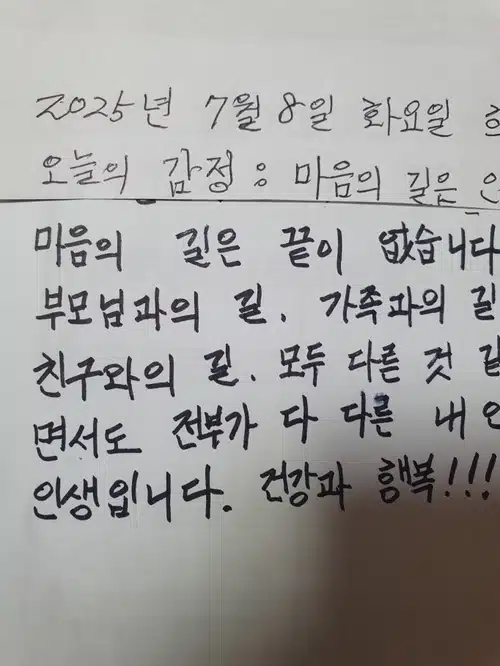 2025년 7월 8일 화요일
오늘의 감정: 마음의 길은
마음의 길은 끝이 없습니다
부모님과의 길. 가족과의 길
친구와의 길. 모두 다른 것
면서도 전부가 다 다른 내
인생입니다. 건강과 행복!!!